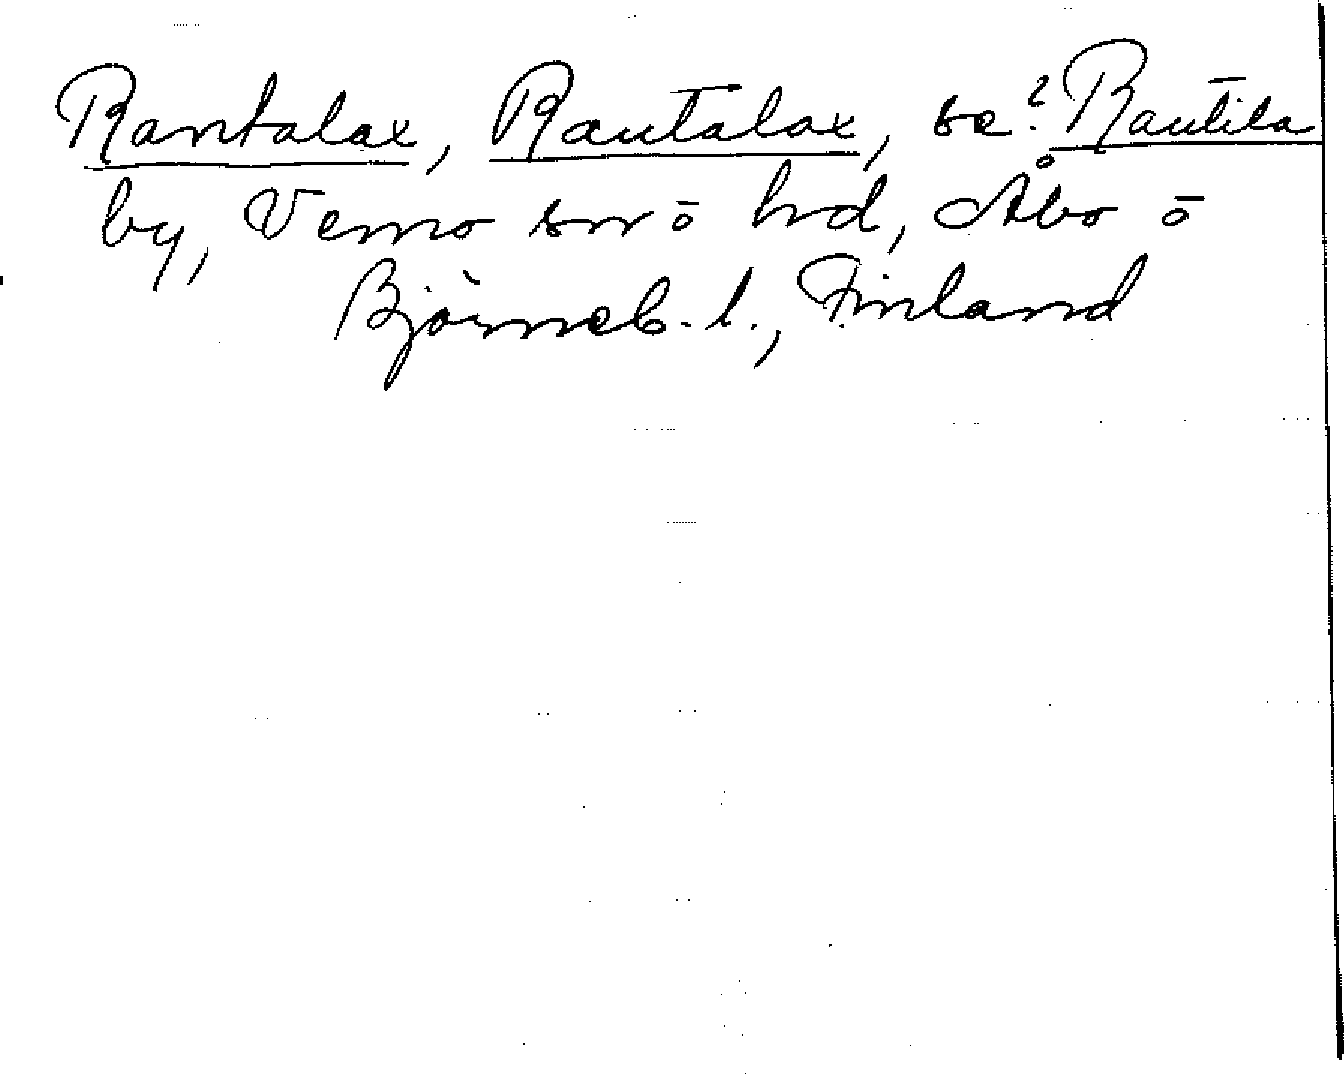 Rantalax, Rautalax, se? Rautila
by, Vemo sn ō hd, Åbo ō
Björneb. l., Finland